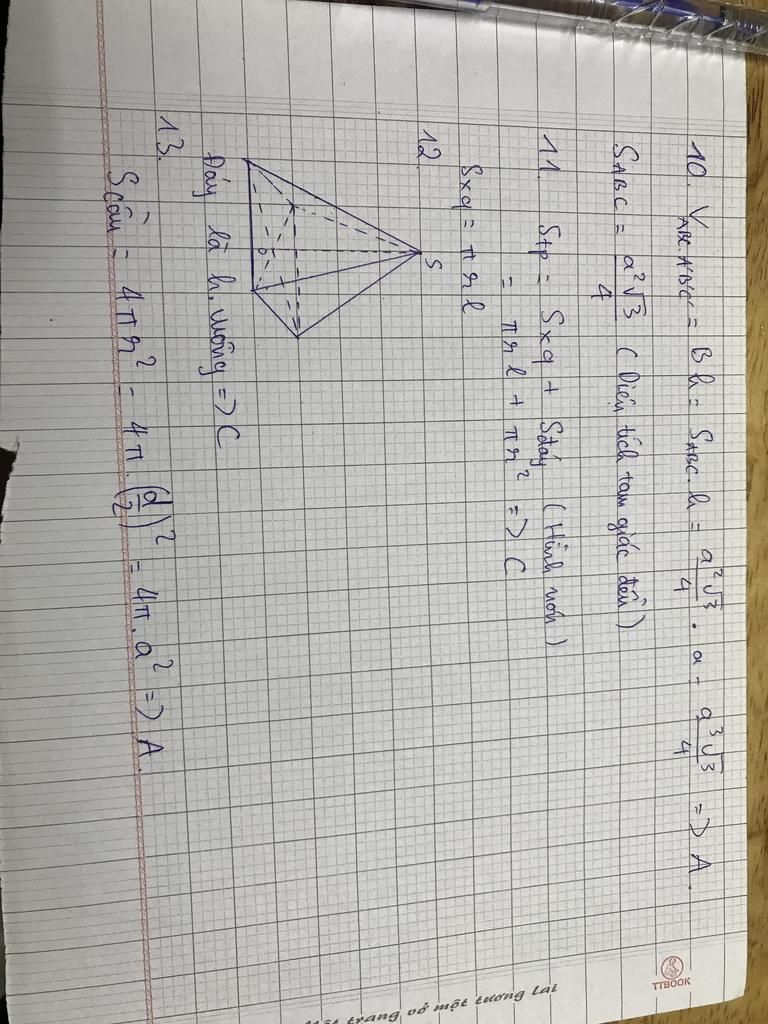 10. V_{ABC.A'B'C'} = Bh = S_{ABC}.h = \frac{a^2\sqrt{3}}{4} . a = \frac{a^3\sqrt{3}}{4} => A.
S_{ABC} = \frac{a^2\sqrt{3}}{4} (Diện tích tam giác đều)
11. Stp = Sxq + Sđáy (Hình nón)
= πrl + πr^2 => C
Sxq = πrl
12.
S
Đáy là h.vuông => C
13.
S cầu = 4πr^2 = 4π.(\frac{d}{2})^2 = 4π.a^2 => A.
TTBOOK
trang vở một tương lai